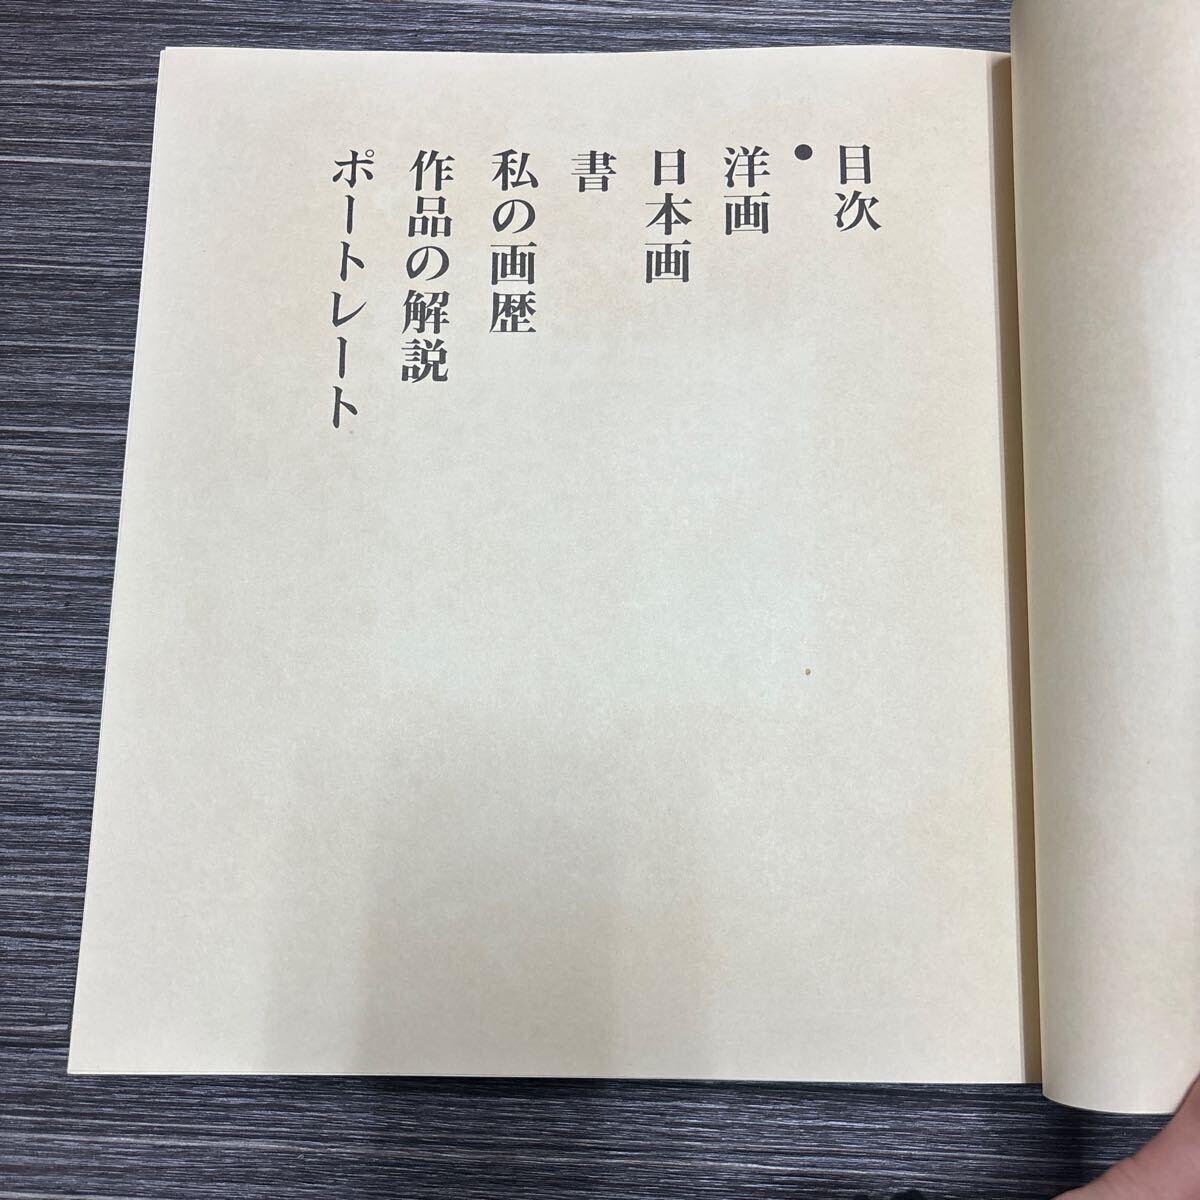 目次
●
洋画
日本画
書
私の画歴
作品の解説
ポートレート